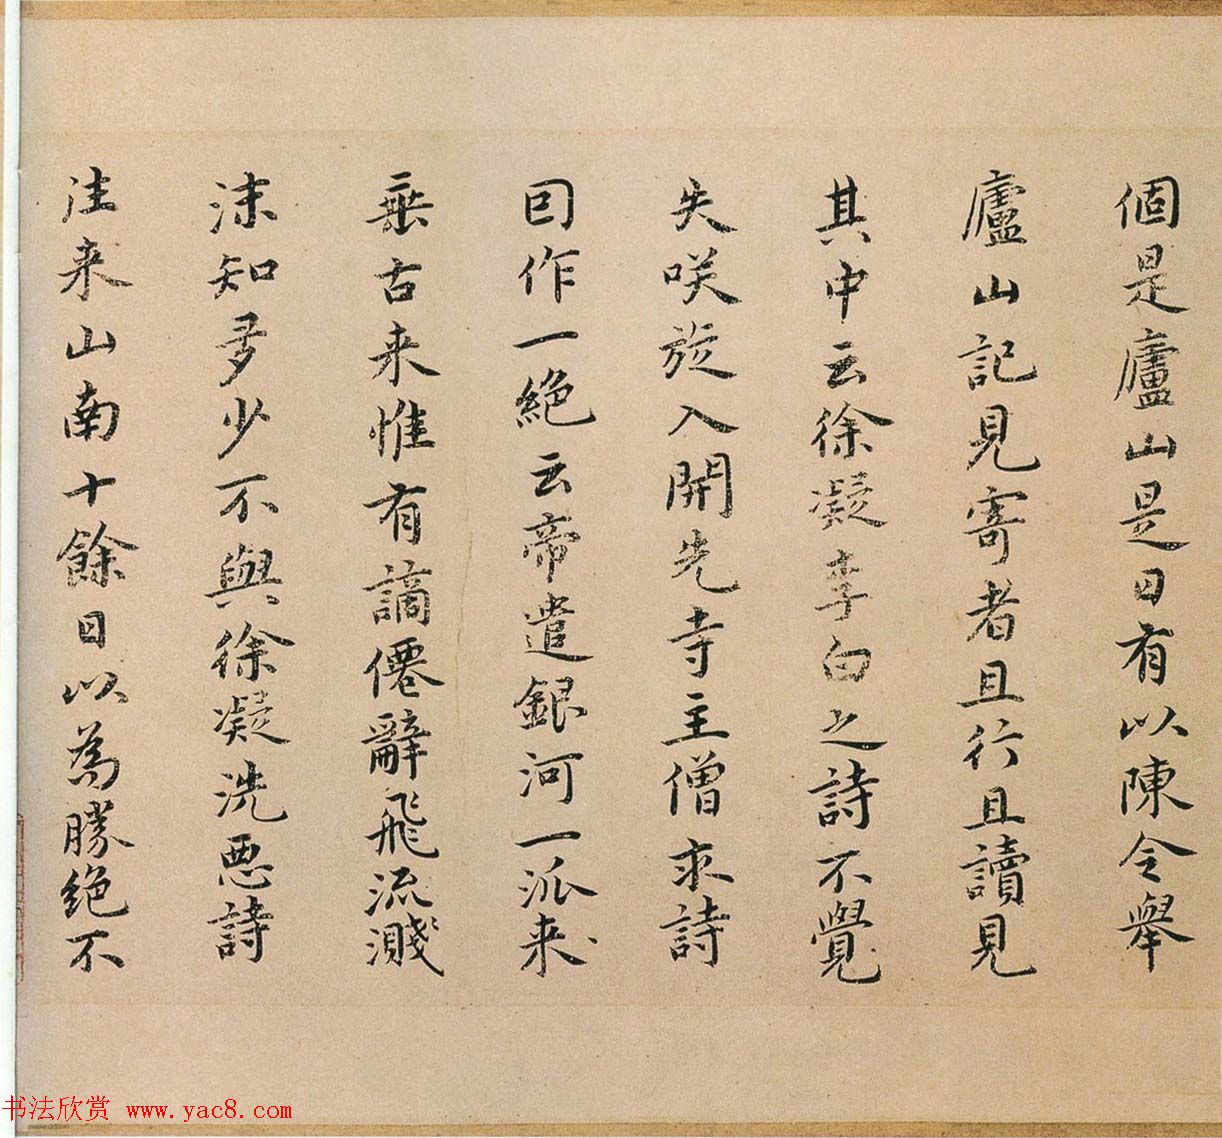 個是廬山是日有以陳令舉
廬山記見寄者且行且讀見
其中云徐凝李白之詩不覺
失咲旋入開先寺主僧求詩
回作一絕云帝遣銀河一派來
垂古来惟有謫僊辭飛流濺
沫知多少不與徐凝洗惡詩
往来山南十餘日以為勝絕不
书法欣赏 www.yac8.com